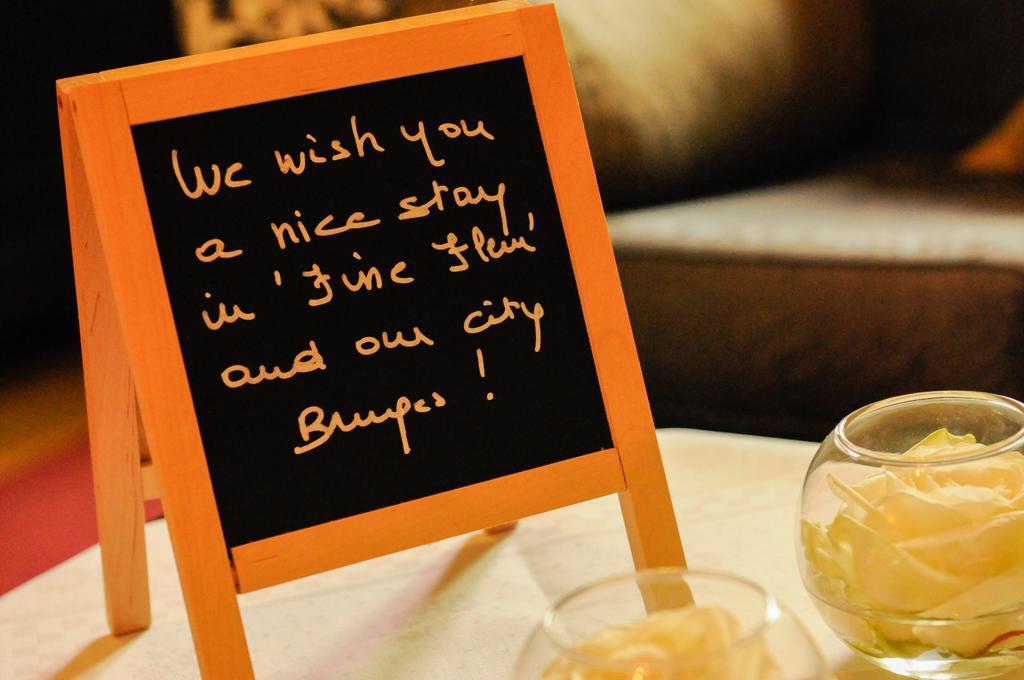 We wish you
a nice stay
in 'Fine Fleur'
and our city
Bruges !